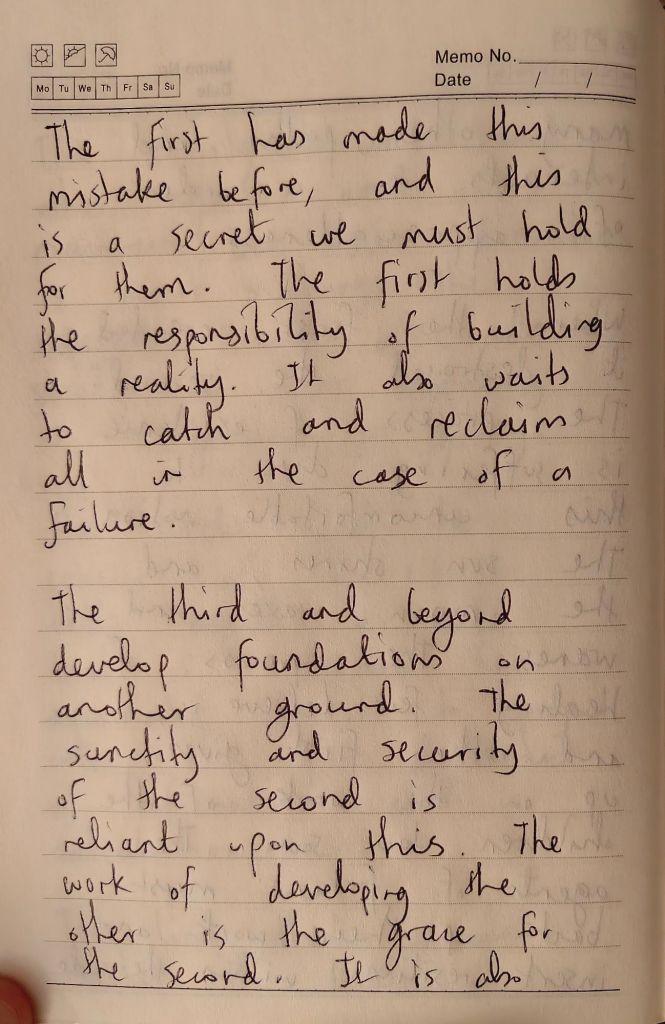 Memo No.
Mo Tu We Th Fr Sa Su
Date / /
The first has made this
mistake before, and this
is a secret we must hold
for them. The first holds
the responsibility of building
a reality. It also waits
to catch and reclaim
all in the case of a
failure.
The third and beyond
develop foundations on
another ground. The
sanctity and security
of the second is
reliant upon this. The
work of developing the
other is the grace for
the second. It is also